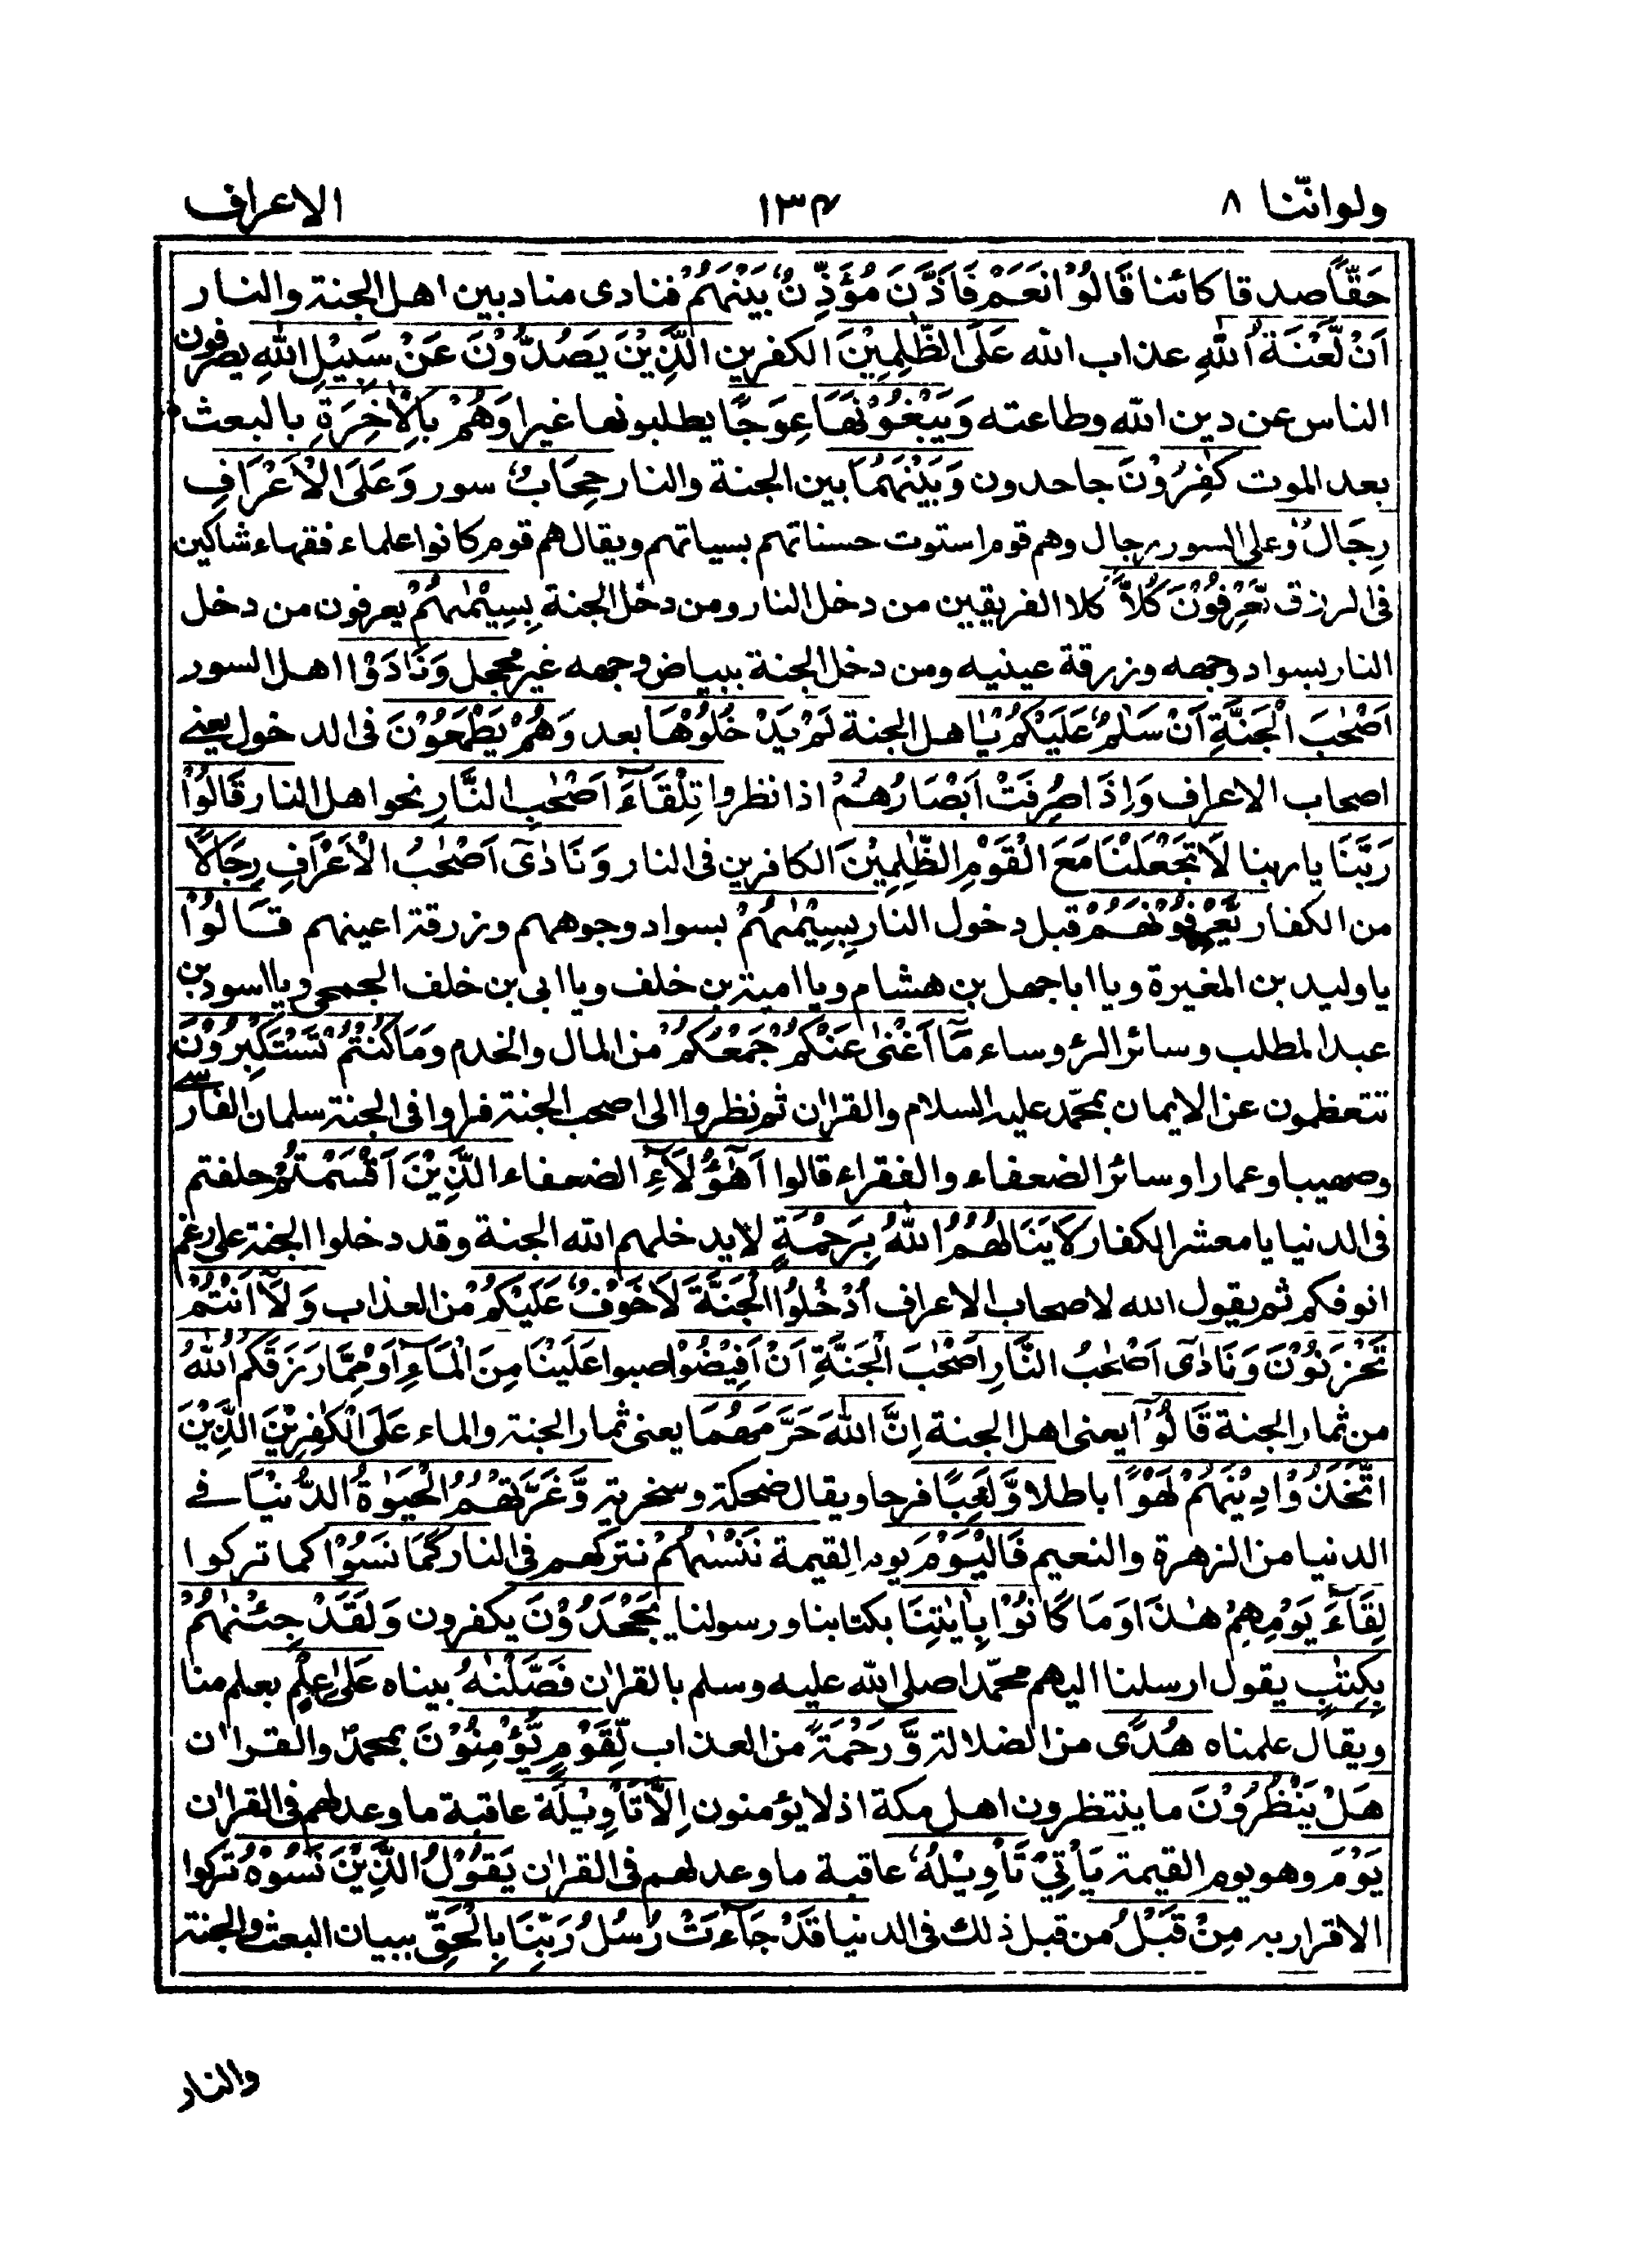 ولواننا ٨
١٣٤
الاعراف
حَقًّا صدقا كائنا قَالُوْا نَعَمْ فَاَذَّنَ مُؤَذِّنٌۢ بَيْنَهُمْ فنادى مناد بين اهل الجنة والنار
اَنْ لَّعْنَةُ اللّٰهِ عذاب الله عَلَى الظّٰلِمِيْنَ الكفرين الَّذِيْنَ يَصُدُّوْنَ عَنْ سَبِيْلِ اللّٰهِ يصرفون
الناس عن دين الله وطاعته وَيَبْغُوْنَهَا عِوَجًا يطلبونها غيرا وَهُمْ بِالْاٰخِرَةِ بالبعث
بعد الموت كٰفِرُوْنَ جاحدون وَبَيْنَهُمَا بين الجنة والنار حِجَابٌ سور وَعَلَى الْاَعْرَافِ
رِجَالٌ وعلى السور رجال وهم قوم استوت حسناتهم بسيئاتهم ويقال هم قوم كانوا علماء فقهاء شاكين
فى الرزق يَّعْرِفُوْنَ كُلًّا كلا الفريقين من دخل النار ومن دخل الجنة بِسِيْمٰىهُمْ يعرفون من دخل
النار بسواد وجهه وزرقة عينيه ومن دخل الجنة ببياض وجهه غير محجل وَنَادَوْا اهل السور
اَصْحٰبَ الْجَنَّةِ اَنْ سَلٰمٌ عَلَيْكُمْ يا اهل الجنة لَمْ يَدْخُلُوْهَا بعد وَهُمْ يَطْمَعُوْنَ فى الدخول يعنے
اصحاب الاعراف وَاِذَا صُرِفَتْ اَبْصَارُهُمْ اذا نظروا تِلْقَآءَ اَصْحٰبِ النَّارِ نحو اهل النار قَالُوْا
رَبَّنَا يا ربنا لَا تَجْعَلْنَا مَعَ الْقَوْمِ الظّٰلِمِيْنَ الكافرين فى النار وَنَادٰٓى اَصْحٰبُ الْاَعْرَافِ رِجَالًا
من الكفار يَّعْرِفُوْنَهُمْ قبل دخول النار بِسِيْمٰىهُمْ بسواد وجوههم وزرقة اعينهم قَالُوْا
يا وليد بن المغيرة ويا ابا جهل بن هشام ويا امية بن خلف ويا ابى بن خلف الجمحى ويا اسود بن
عبد المطلب وسائر الرؤساء مَآ اَغْنٰى عَنْكُمْ جَمْعُكُمْ من المال والخدم وَمَا كُنْتُمْ تَسْتَكْبِرُوْنَ
تتعظمون عن الايمان بمحمد عليه السلام والقرأن ثم نظروا الى اصحب الجنة فراوا فى الجنة سلمان الفارسے
وصهيبا وعمارا وسائر الضعفاء والفقراء قالوا اَهٰٓؤُلَآءِ الضعفاء الَّذِيْنَ اَقْسَمْتُمْ حلفتم
فى الدنيا يا معشر الكفار لَا يَنَالُهُمُ اللّٰهُ بِرَحْمَةٍ لا يدخلهم الله الجنة وقد دخلوا الجنة على رغم
انوفكم ثم يقول الله لاصحاب الاعراف اُدْخُلُوا الْجَنَّةَ لَا خَوْفٌ عَلَيْكُمْ من العذاب وَلَآ اَنْتُمْ
تَحْزَنُوْنَ وَنَادٰٓى اَصْحٰبُ النَّارِ اَصْحٰبَ الْجَنَّةِ اَنْ اَفِيْضُوْا صبوا عَلَيْنَا مِنَ الْمَآءِ اَوْ مِمَّا رَزَقَكُمُ اللّٰهُ
من ثمار الجنة قَالُوْٓا يعنى اهل الجنة اِنَّ اللّٰهَ حَرَّمَهُمَا يعنى ثمار الجنة والماء عَلَى الْكٰفِرِيْنَ الَّذِيْنَ
اتَّخَذُوْا دِيْنَهُمْ لَهْوًا باطلا وَّلَعِبًا فرحا ويقال ضحكة وسخرية وَّغَرَّتْهُمُ الْحَيٰوةُ الدُّنْيَا فے
الدنيا من الزهرة والنعيم فَالْيَوْمَ يوم القيمة نَنْسٰىهُمْ نتركهم فى النار كَمَا نَسُوْا كما تركوا
لِقَآءَ يَوْمِهِمْ هٰذَا وَمَا كَانُوْا بِاٰيٰتِنَا بكتابنا ورسولنا يَجْحَدُوْنَ يكفرون وَلَقَدْ جِئْنٰهُمْ
بِكِتٰبٍ يقول ارسلنا اليهم محمدا صلى الله عليه وسلم بالقرأن فَصَّلْنٰهُ بيناه عَلٰى عِلْمٍ بعلم منا
ويقال علمناه هُدًى من الضلالة وَّرَحْمَةً من العذاب لِّقَوْمٍ يُّؤْمِنُوْنَ بمحمد والقرأن
هَلْ يَنْظُرُوْنَ ما ينتظرون اهل مكة اذ لا يؤمنون اِلَّا تَاْوِيْلَهٗ عاقبة ما وعد لهم فى القرأن
يَوْمَ وهو يوم القيمة يَاْتِيْ تَاْوِيْلُهٗ عاقبة ما وعد لهم فى القرأن يَقُوْلُ الَّذِيْنَ نَسُوْهُ تركوا
الاقرار به مِنْ قَبْلُ من قبل ذلك فى الدنيا قَدْ جَآءَتْ رُسُلُ رَبِّنَا بِالْحَقِّ ببيان البعث والجنة
والنار